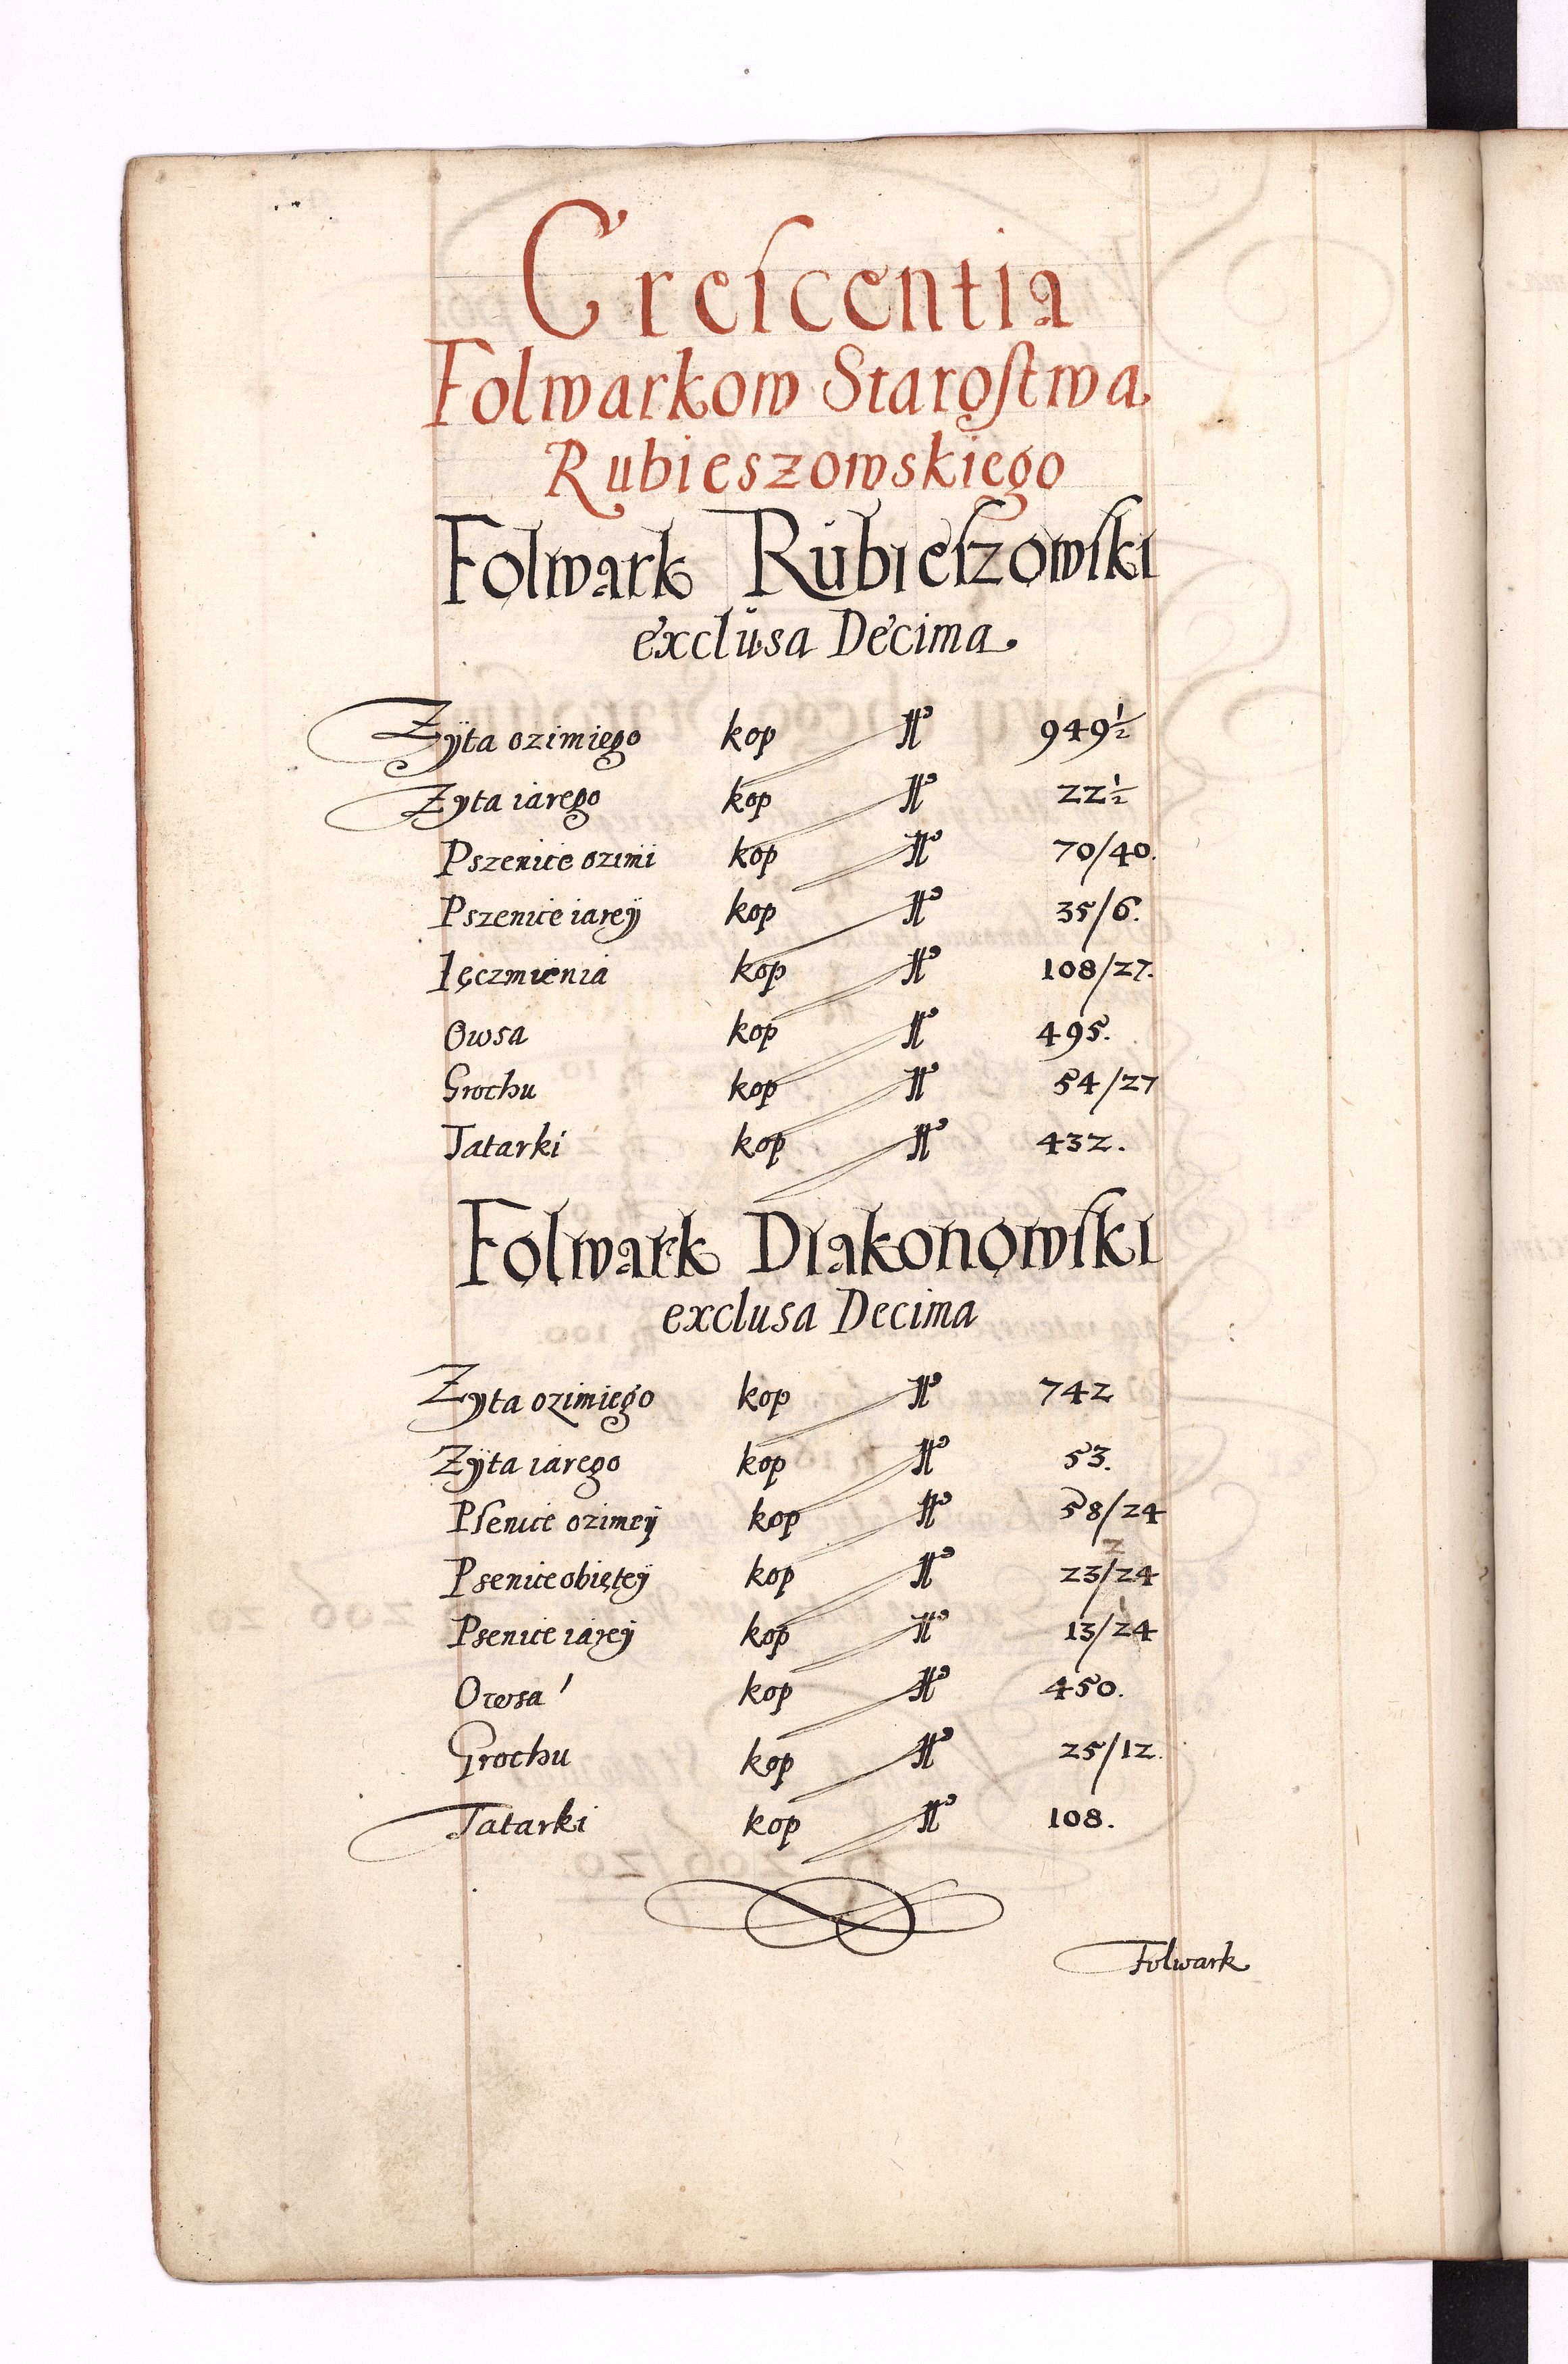 Creſcentia
Folwarkow Staroſtwa
Rubieszowskiego
Folwark Rŭbieſzowſki
exclŭsa Decima
Zÿta ozimiego kop 949½
Zyta iarego kop 22½
Pszenice ozimi kop 70/40.
Pszenice iareÿ kop 35/6.
Ięczmienia kop 108/27.
Owsa kop 495.
Grochu kop 54/27
Tatarki kop 432.
Folwark Diakonowſki
exclusa Decima
Zyta ozimiego kop 742
Zÿta iarego kop 53.
Pſenice ozimeÿ kop 58/24
Psenice obięteÿ kop 23/24
Psenice iareÿ kop 13/24
Owsa kop 450.
Grochu kop 25/12.
Tatarki kop 108.
Folwark